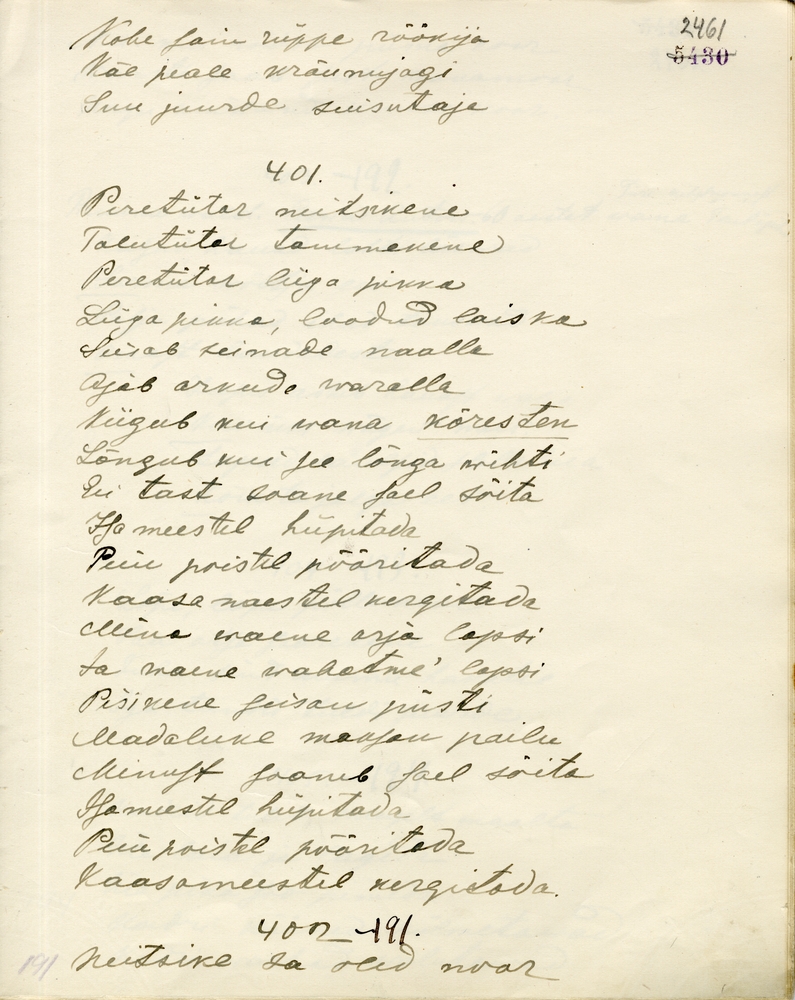 2461
5430
Kohe sain rüppe röökija
Käe peale kräunujagi
Suu juurde suisutaja
401.
Peretütar neitsikene
Talutütar tammekene
Peretütar liiga pikka
Liiga pikka, loodud laiska
Seisab seinade naalla
Ajab arkude waralla
Kiigub kui wana kõresten
Lõngub kui see lõnga wihti
Ei tast saane sael sõita
Isameestel hüpitada
Peiu poistel pööritada
Kaasanaestel kergitada
Mina waene orja lapsi
Ja waene wabatme' lapsi
Pisikene seisan püsti
Madaluke maksan pailu
Minust saaneb sael sõita
Isameestel hüpitada
Peiu poistel pööritada
Kaasameestel kergitada.
402 191.
191
Neitsike sa olid noor